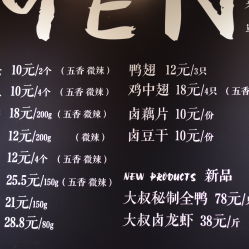 MEN
10元/2个 (五香 微辣)
10元/4个 (五香 微辣)
18元/200g (五香 微辣)
12元/200g (微辣)
12元/4个 (五香 微辣)
25.5元/150g (五香 微辣)
21元/150g
28.8元/80g
鸭翅 12元/3只
鸡中翅 18元/4只 (五香
卤藕片 10元/份
卤豆干 10元/份
NEW PRODUCTS 新品
大叔秘制全鸭 78元/
大叔卤龙虾 38元/斤